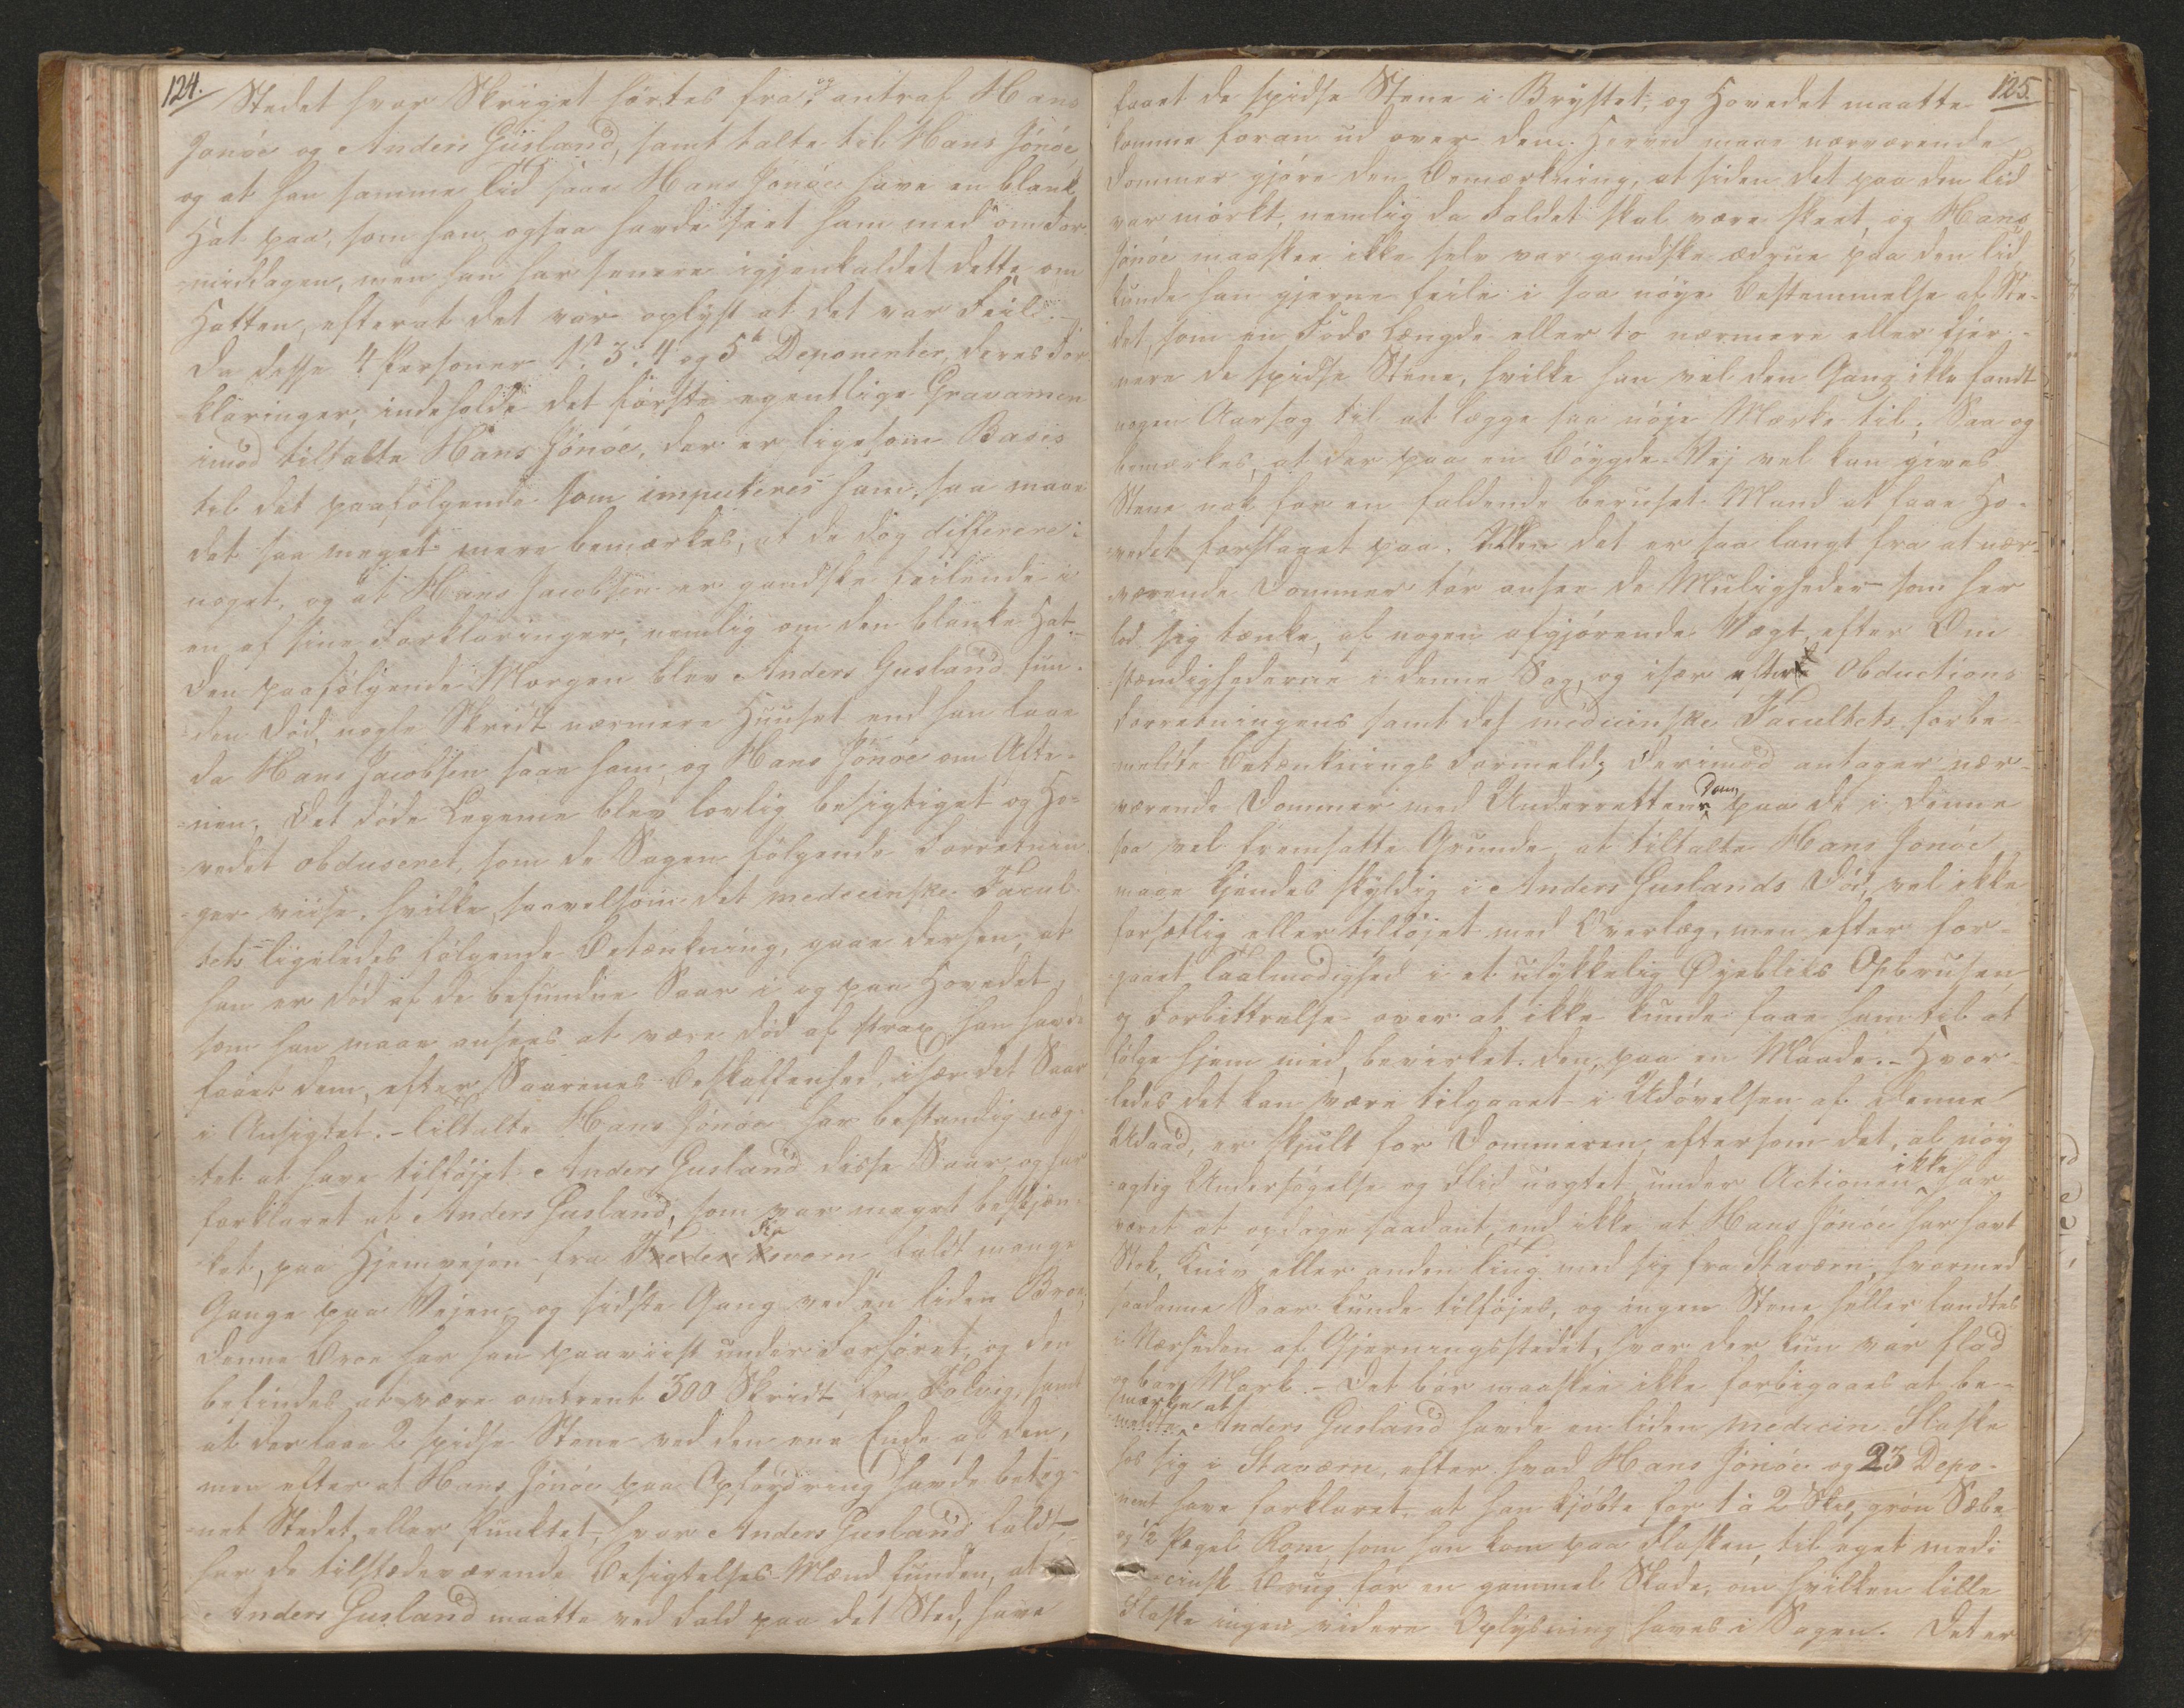 124.
Stedet hvor Skriget hörtes fra, og antraf Hans
Jonöe og Anders Gusland, samt talte til Hans Jonöe
og at han samme Tid saae Hans Jonöe have en blank
Hat paa, som han ogsaa havde seet ham med om For-
middagen, men han har senere igjenkaldet dette om
Hatten, efterat det var oplyst at det var Feil.
Da disse 4 Personer 1.ste 3. 4 og 5te Deponenter, deres For-
klaringer, indeholde det förste egentlige Gravamen
imod tiltalte Hans Jonöe, der er ligesom Basis
til det paafölgende som imputeres ham, saa maae
det saa meget mere bemærkes, at de dog differere i
noget, og at Hans Jacobsen er gandske feilende i
en af sine Forklaringer, nemlig om den blanke Hat.
Den paafölgende Morgen blev Anders Gusland fun-
den död, nogle Skridt nærmere Huuset end han laae
da Hans Jacobsen saae ham og Hans Jonöe om Afte-
nen. Det döde Legeme blev lovlig besigtiget og Ho-
vedet obduseret, som de Sagen fölgende Forretnin-
ger viise, hvilke, saavelsom det medicinske Facul-
tets ligeledes fölgende Betænkning, gaae derhen, at
han er död af de befundne Saar i og paa Hovedet,
som han maae ansees at være död af strax han havde
faaet dem, efter Saarenes Beskaffenhed, især det Saar
i Ansigtet. - Tiltalte Hans Jonöe har bestandig næg-
tet at have tilföjet Anders Gusland disse Saar, og har
forklaret at Anders Gusland, som var meget beskjæn-
ket, paa Hjemvejen fra Frederiksværn faldt mange
Gange paa Vejen, og sidste Gang ved en liden Broe,
denne Broe har han paaviist under Forhöret, og den
befindes at være omtrent 300 Skridt fra Folvig, samt
at der laae 2 spidse Stene ved den ene Ende af den,
men efter at Hans Jonöe paa Opfordring havde beteg-
net Stedet, eller Punktet, hvor Anders Gusland faldt,
har de tilstædeværende Besigtelses-Mænd funden, at
Anders Gusland maatte ved Fald paa det Sted, have
125.
faaet de spidse Stene i Brystet, og Hovedet maatte
komme foran ud over dem. Herved maae nærværende
Dommer gjöre den Bemærkning, at siden det paa den Tid
var mörkt, nemlig da Faldet skal være skeet, og Hans
Jonöe maaskee ikke selv var gandske ædrue paa den Tid,
kunde han gjerne feile i saa nöye Bestemmelse af Ste-
det, som en Fods Længde eller to nærmere eller fjer-
nere de spidse Stene, hvilke han vel den Gang ikke fandt
nogen Aarsag til at lægge saa nöje Mærke til; Saa og
bemærkes, at der paa en Böygde-Vej vel kan gives
Stene nok for en faldende beruset Mand at faae Ho-
vedet forslaget paa. Men det er saa langt fra at nær-
værende Dommer tör ansee de Muligheder som her
lod sig tænke, af nogen afgjörende Vægt, efter Om-
stændighederne i denne Sag, og især efter Obductions
Forretningens samt det medicinske Facultets forbe-
meldte Betænknings Formeld; derimod antager nær-
værende Dommer med Underretten dom paa de i denne
saa vel fremsatte Grunde, at tiltalte Hans Jonöe
maae kjendes skyldig i Anders Guslands Död, vel ikke
forsætlig eller tilföjet med Overlæg, men efter for-
gaaet Taalmodighed i et ulykkelig Öjebliks Opbrusen
og Forbittrelse over at ikke kunde faae ham til at
fölge hjem med, bevirket den, paa en Maade. - Hvor-
ledes det kan være tilgaaet i Udövelsen af denne
Udaad, er skjult for Dommeren, eftersom det, al nöy-
agtig Undersögelse og Flid uagtet under Actionen ikke har
været at opdage saadant, end ikke at Hans Jonöe har havt
Stok, Kniv eller anden Ting med sig fra Stavern, hvormed
saadanne Saar kunde tilföjes, og ingen Stene heller fandtes
i Nærheden af Gjerningsstedet, hvor der kun var flad
og bar Mark. - Det bör maaskee ikke forbigaaes at be-
mærke at
meldte Anders Gusland havde en liden medicin Flaske
hos sig i Stavern, efter hvad Hans Jonöe og 23 Depo-
nent have forklaret, at han kjöbte for 1 à 2 Skl, grön Sæbe
og 1/2 Pægel Rom, som han kom paa Flasken, til eget medi-
cinsk Brug for en gammel Skade, om hvilken lille
Flaske ingen videre Oplysning haves i Sagen. Det er